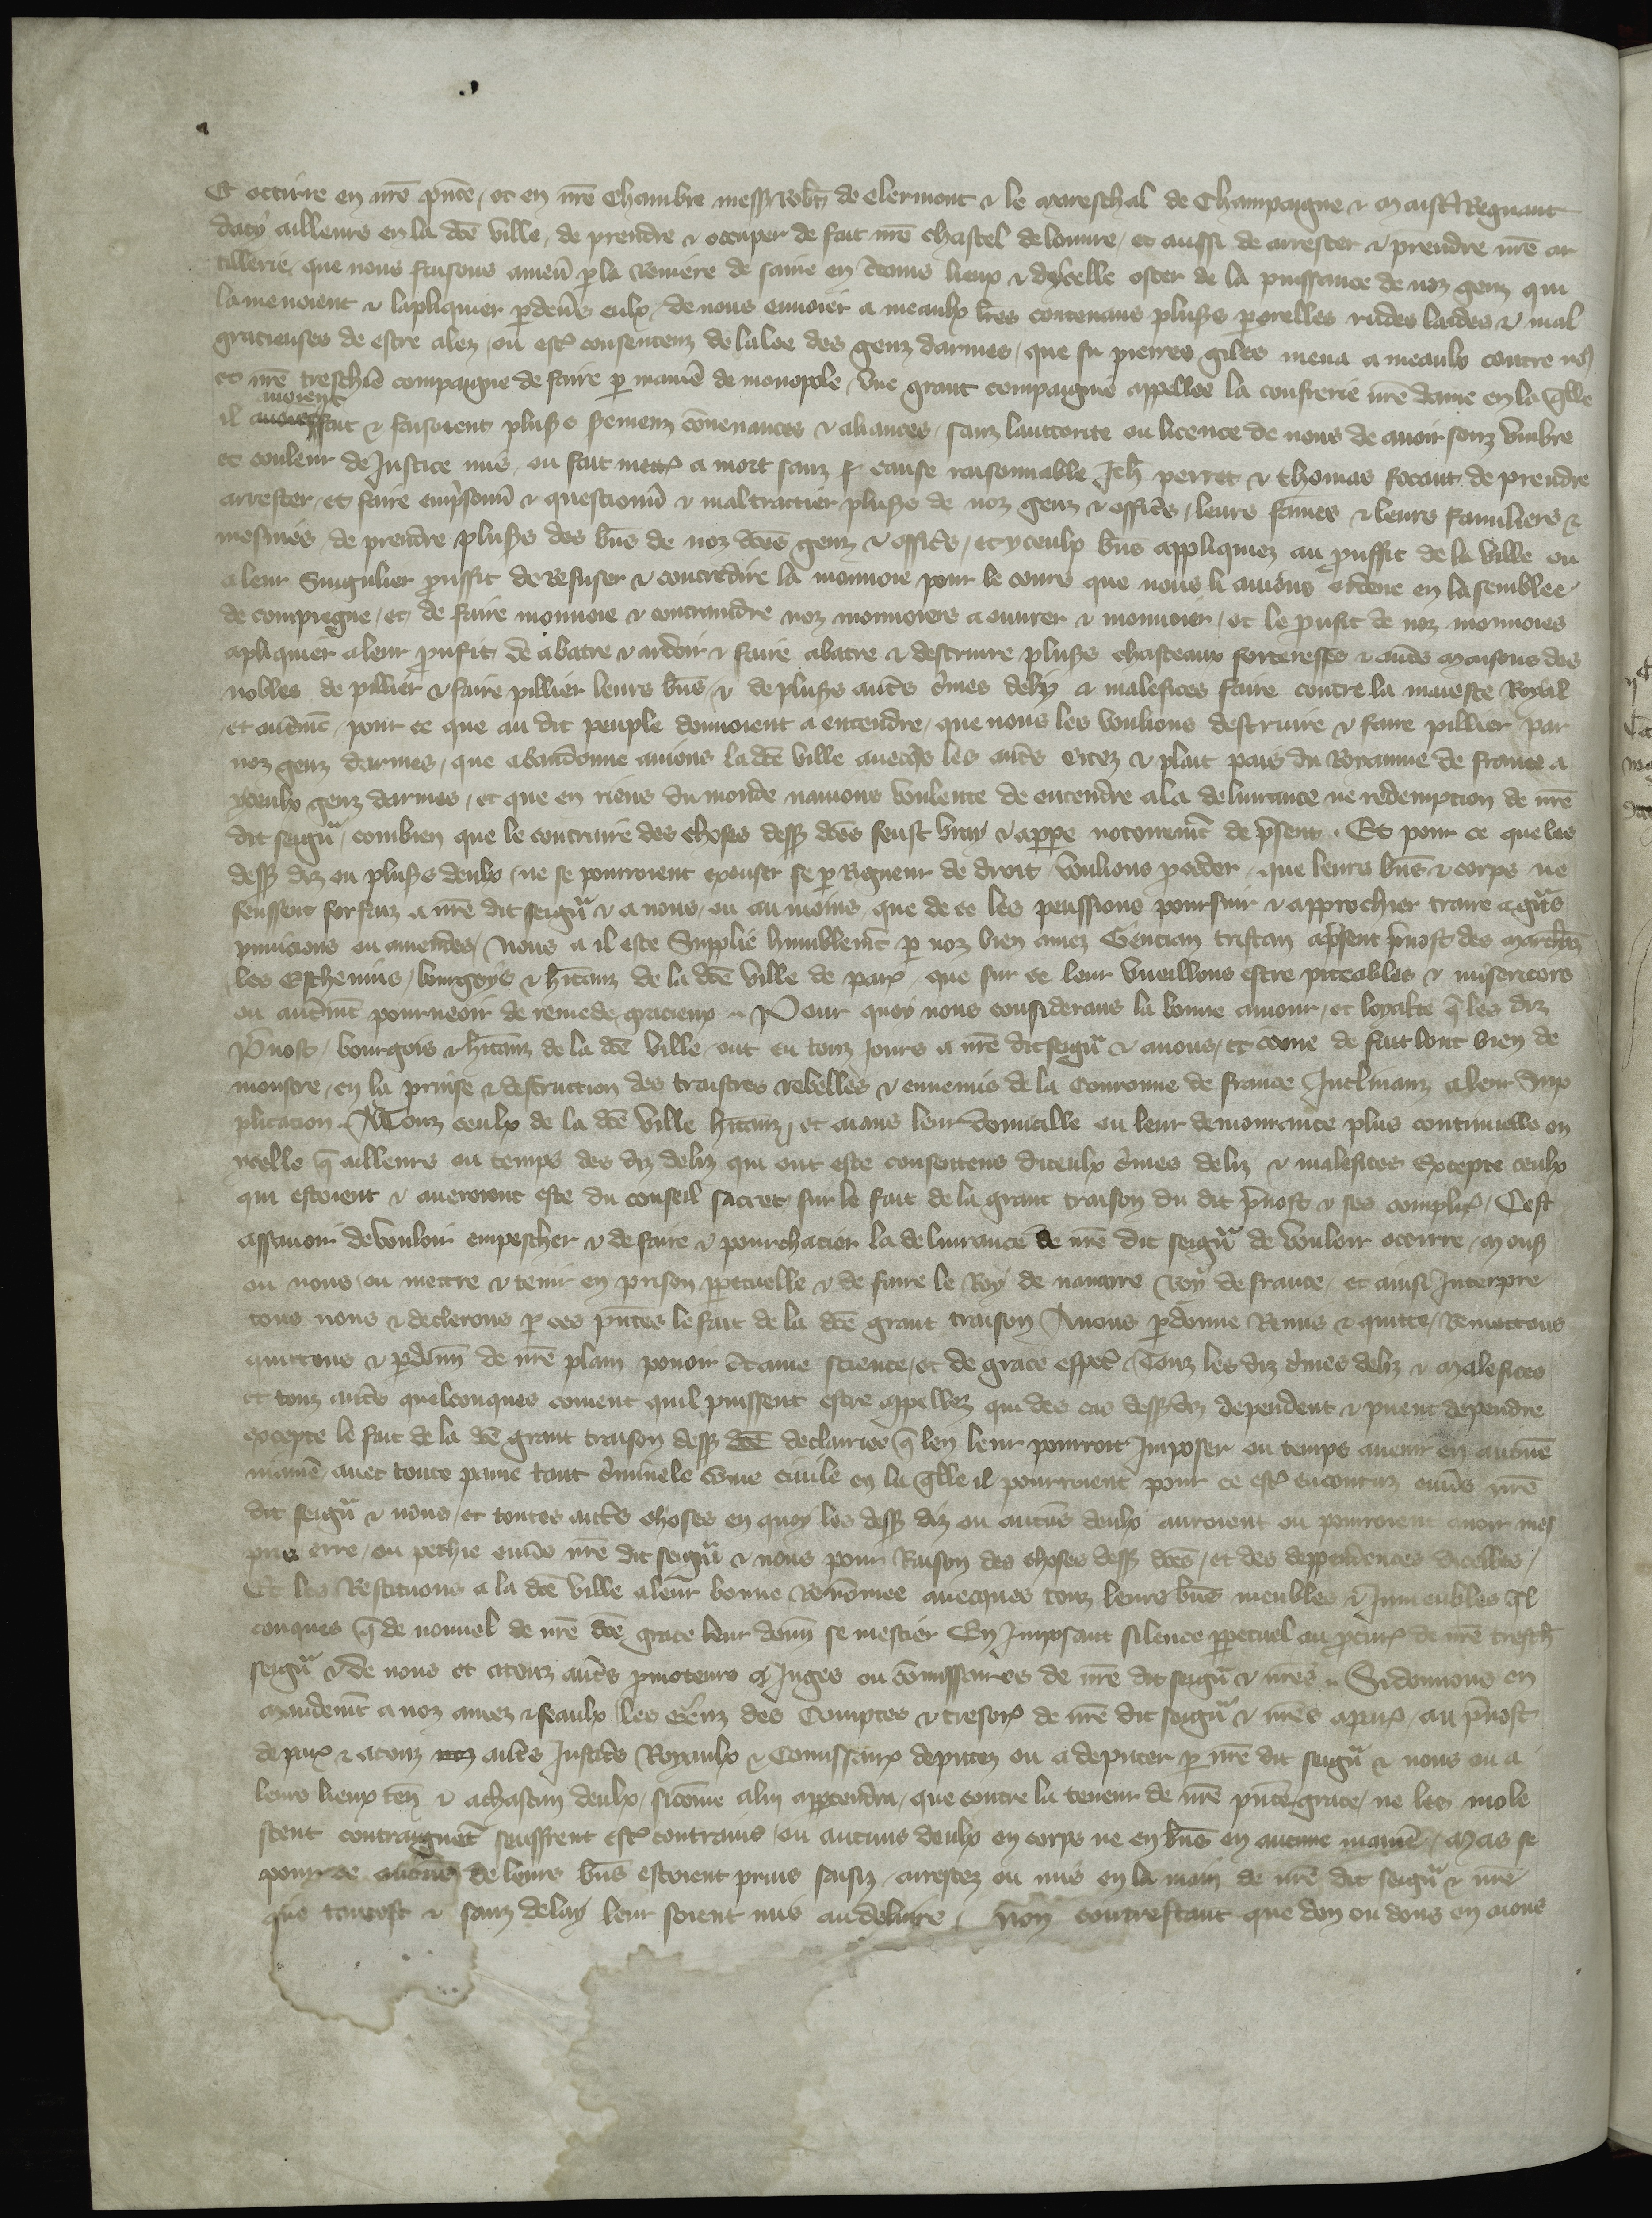 Et occirre en nrē pñce, et en nrē Chambre mess Robt de Clermont & le mareschal de Champaigne & maistre Regnaut
dacy ailleurs en la dcē ville, de prendre & occuper de fait nrē chastel du louvre, et aussi de arrester & prendre nrē ar
tillerie, que nous faisons amen̄ p la riviere de saine en c̄tains lieux & dycelle oster de la puissance de noz genz qui
la menoient & lapliquier p devs eulx, de nous envoier a meaulx lr̄es contenans plus̄s parolles rudes laides & mal
gracieuses de estre alez, ou estr̄ consentenz de lalee des genz darmes, que fu pierres giles mena a meaulx contre no9
et nrē treschiē compaigne de faire p maniē de monopole, une grant compaignie appellee la confrerie nrē dame en la qlle
il avoient fait & faisoient plus̄s seremenz cōvenances & aliances, sanz lauctorite ou licence de nous de avoir souz umbre
et couleur de Justice mis, ou fait mettr̄ a mort sanz cause raisonnable Jeh̄ perret & thomas focaut de prendre
arrester, et faire emp̄sonn̄ & questionn̄ & mal traictier plus̄s de noz genz & offic̄s, leurs fames & leurs familiers &
mesnies, de prendre plus̄s des bn̄s de noz dc̄es genz & offic̄s, et yceulx bn̄s appliquiez au p̄uffit de la ville ou
a leur singulier p̄uffit de refuser & contredire la monnoie pour le cours que nous li avions ordene en lasemblee
de compiegne, et de faire monnoie & contraindre noz monnoiers a ouvrer & monnoier, et le p̄ufit de noz monnoies
apliquier a leur p̄ufit, de abatre & ardoir & faire abatre & destruire plus̄s chasteaux forteresses & aut̄s maisons des
nobles de pillier & faire pillier leurs bn̄s, & de plus̄s aut̄s c̄mes deliz & malefices faire contre la maieste Royal
et autm̄t, pour ce que au dit peuple donnoient a entendre, que nous les voulions destruire & faire pillier par
noz genz darmes, que abandonne avions la dcē ville avecqs les aut̄s citez & plait pais du Royaume de france a
yceulx genz darmes, et que en riens du monde navions voulente de entendre a la delivrance ne redempcion de nrē
dit seigr̄, combien que le contraire des choses dess dc̄es feust vray & apppe notoirem̄t de p̄sent. Et pour ce que les
dess diz ou plus̄s deulx, ne se pourroient excuser se p Rigueur de droit voulions p̄ceder, que leurs bn̄s & corps ne
feussent forfaiz a nrē dit seigr̄ & a nous, ou au moins, que de ce les peussions poursuir & approchier traire a gr̄ns
punicions ou amendes, Nous a il este supplie humblem̄t p noz bien amez Gencian tristan ap̄sent p̄vost des march̄nz
les Eschevins, bourgoys & h̄itanz de la dcē ville de par̄, que sur ce leur vueillons estre piteables & misericors
ou autm̄t pourveoir de remede gracieux. Pour quoy nous considerans la bonne amour, et loyalte q̄ les diz
P̄vost, bourgois & h̄itanz de la dcē ville, ont eu touz jours a nrē dit seigr̄ & a nous, et cōme de fait lont bien de
monstre, en la prinse & destruction des traistres rebelles & ennemis de la Couronne de france Inclinanz a leur sup
plicacion. A Touz ceulx de la dcē ville h̄itanz, et aians leur domicille ou leur demourance plus continuelle en
ycelle q̄ ailleurs ou temps des diz deliz qui ont este consentens diceulx c̄mes deliz & malefices Excepte ceulx
qui estoient & averoient este du conseil sacret sur le fait de la grant traison du dit p̄vost & ses complic̄, Cest
assavoir de vouloir empescher & de faire & pourchacier la delivrance de nrē dit seigr̄ de vouloir occirre, mons̄
ou nous, ou mettre & tenir en prison ppetuelle & de faire le Roy de navarre Roy de france, et ainsi Interpre
tons nous & declerons p ces pn̄tes le fait de la dcē grant traison Avons pdonne Remis & quitte, Remettons
quittons & pdonn̄ de nrē plain povoir c̄taine science, et de grace espel̄, Touz les diz c̄mes deliz & malefices
et touz aut̄s quelconques coment quil puissent estre appellez qui des cas dess diz dependent & puent dependre
excepte le fait de la dcē grant traison dess declairiee q̄ len leur pourroit Imposer ou temps avenir en aucune
maniē, avec toute paine tant c̄minele cōme civile en la qlle il pourroient pour ce estr̄ encouruz envs nrē
dit seigr̄ & nous, et toutes aut̄s choses en quoy les dess diz ou aucuns deulx auroient ou pourroient avoir mes
pris erre, ou pechie envs nrē dit seigr̄ & nous pour Raison des choses dess dc̄es, et des deppendences dicelles,
Et les Restituons a la dcē ville a leur bonne Renōmee avecques touz leurs bn̄s meubles & Inmeubles ql
conques q̄ de nouvel de nrē dcē grace leur donn̄ se mestier Est Imposant silence ppetuel au p̄cur̄ de nrē tresch̄
seigr̄ & de nous et a touz aut̄s p̄moteurs & Juges ou cōmissaires de nrē dit seigr̄ & nrēs. Si donnons en
mandem̄t a noz amez & feaulx, les genz des Comptes & tresor̄ de nrē dit seigr̄ & nrēs a par̄, au p̄vost
de par̄ & a touz aut̄s Justic̄s Royaulx & Commissair̄ deputez ou a deputer p nrē dit seigr̄ & nous ou a
leurs lieux ten̄ & a chascun deulx, sicōme a lui apptendra, que contre la teneur de nrē pn̄te grace, ne les mole
stent contraignēt seuffrent estr̄ contrains, ou aucuns deulx en corps ne en bn̄s en aucune maniē, Mais se
pour ce aucuns de leurs bn̄s estoient prins saisiz, arrestez ou mis en la main de nrē dit seigr̄ & nrē
que tantost & sanz delay leur soient mis au delivre, Non contrestant que don ou dons en aions